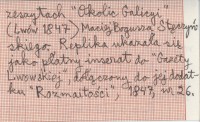 zeszytach "Okolic Galicyi"
(Lwów 1847) Macieja Bogusza Stęczyń-
skiego. Replika ukazała się
jako płatny inserat do "Gazety
Lwowskiej" dołączony do jej dodat-
ku "Rozmaitości", 1847, nr. 26.